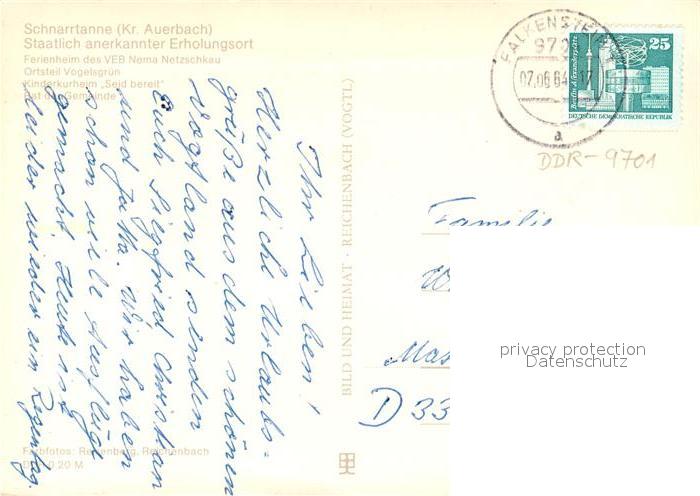 Schnarrtanne (Kr. Auerbach)
Staatlich anerkannter Erholungsort
Ferienheim des VEB Nema Netzschkau
Ortsteil Vogelsgrün
Kinderkurheim „Seid bereit"
Rat der Gemeinde
Ihr Lieben!
Herzliche Urlaubs-
grüße aus dem schönen
Vogtland senden
Euch Siegfried Christian
und Jutta. Wir haben
schon viele Ausflüge
gemacht. Heute ist
leider wieder ein Regentag.
Farbfotos: Reichenbach
0,20 M
BILD UND HEIMAT · REICHENBACH (VOGTL)
FALKENSTEIN
970
07.06.84-17
a
25
Berlin, Alexanderplatz
DEUTSCHE DEMOKRATISCHE REPUBLIK
DDR-9701
Familie
W
Mas
D 33
privacy protection
Datenschutz